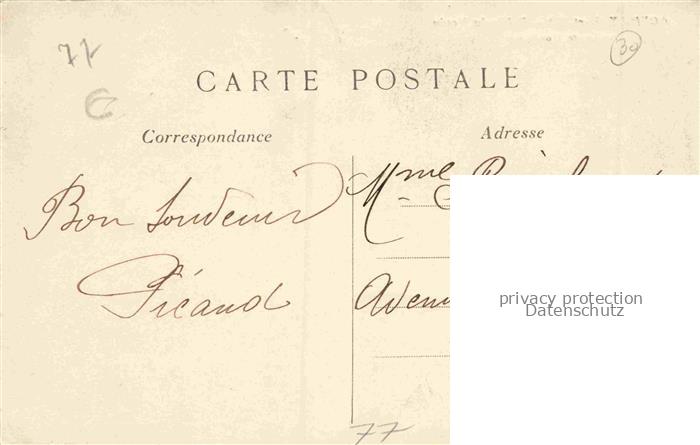 77
30
CARTE POSTALE
Correspondance
Adresse
Mme
Bon Souvenir
Picaud
privacy protection
Datenschutz
77